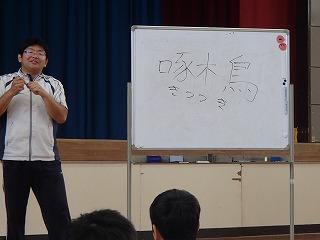 啄木鳥
きつつき